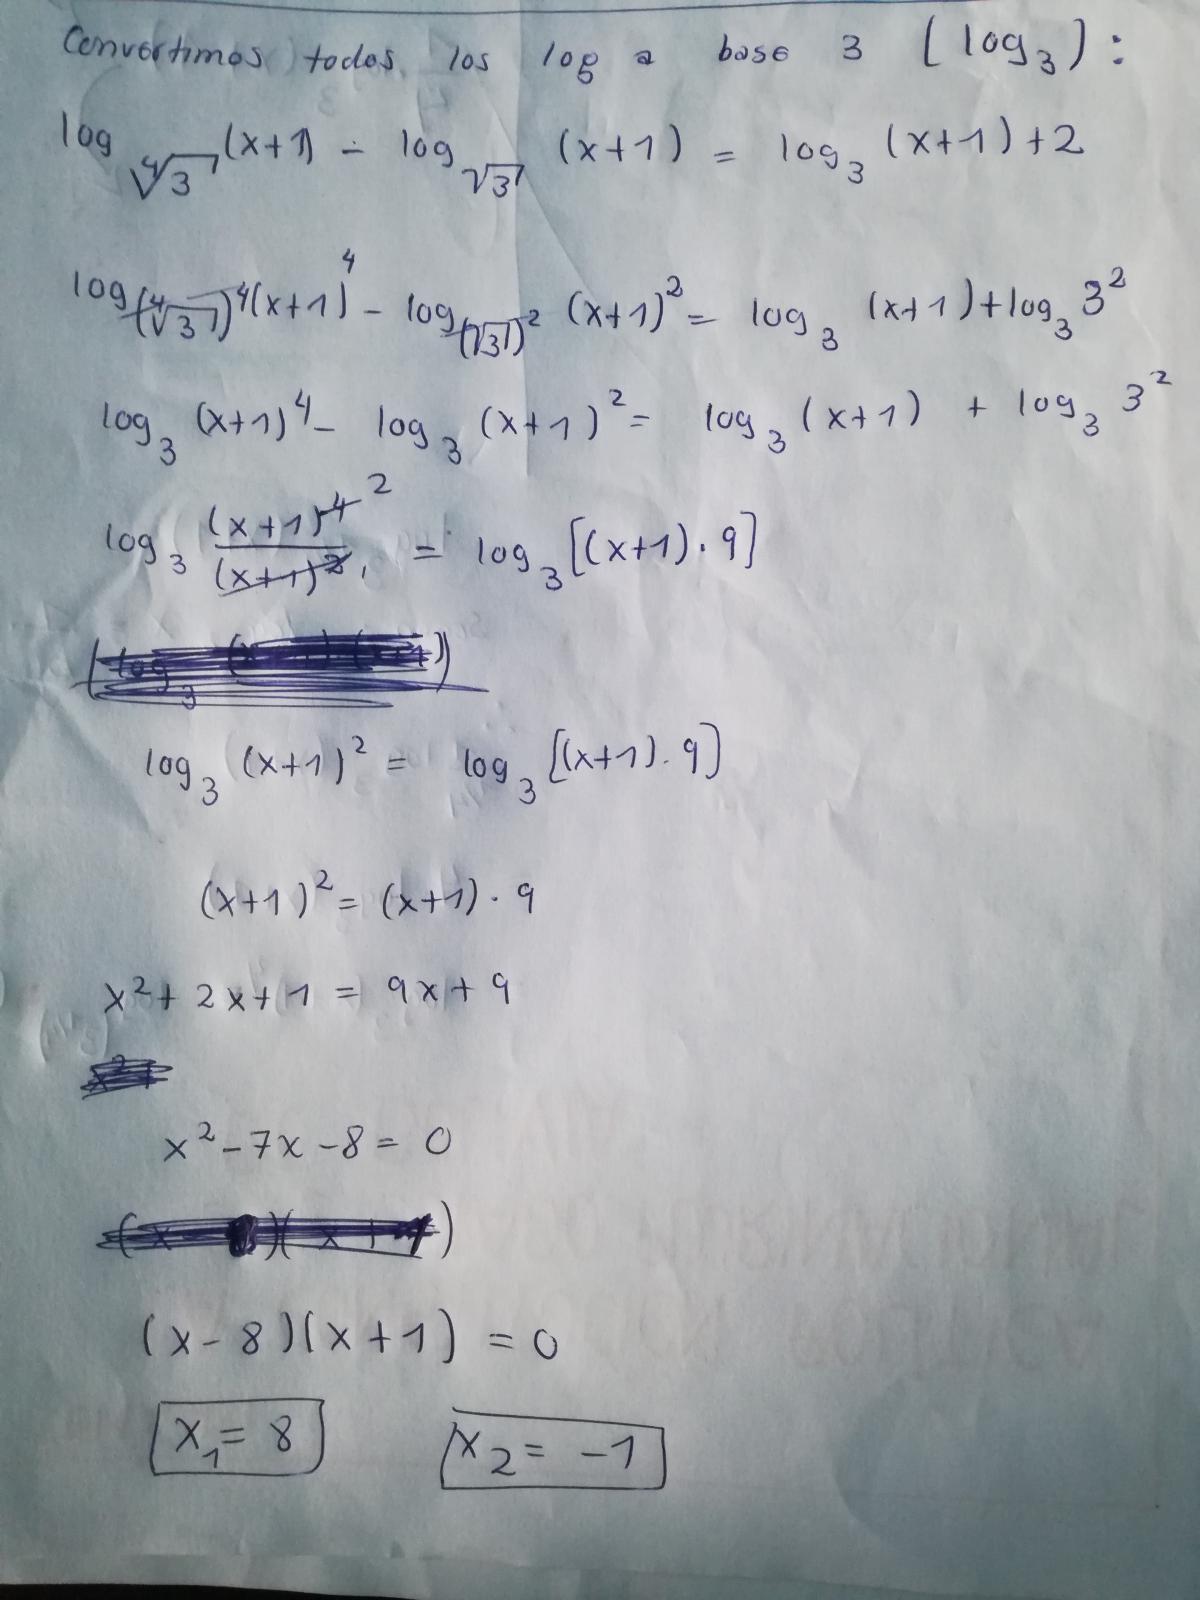 Convertimos todos los log a base 3 (log₃):
log ⁴√3 (x+1) - log √3 (x+1) = log₃ (x+1)+2
log (⁴√3)⁴ (x+1)⁴ - log (√3)² (x+1)² = log₃ (x+1)+log₃ 3²
log₃ (x+1)⁴ - log₃ (x+1)² = log₃ (x+1) + log₃ 3²
log₃ (x+1)⁴ ² / (x+1)² ₁ = log₃ [(x+1)·9]
log₃ (x+1)² = log₃ [(x+1)·9]
(x+1)² = (x+1)·9
x²+2x+1 = 9x+9
x²-7x-8 = 0
(x-8)(x+1) = 0
x₁ = 8 x₂ = -1